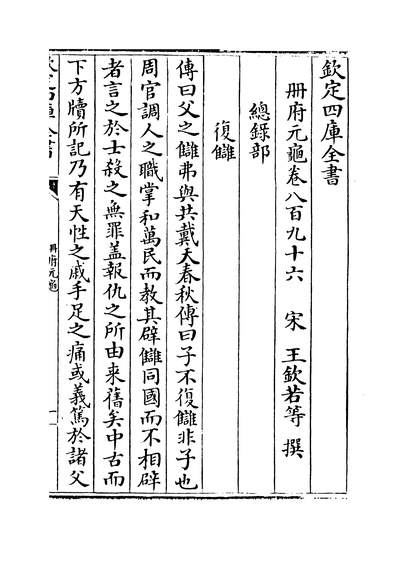 欽定四庫全書
冊府元龜卷八百九十六　宋　王欽若等　撰
總錄部
復讎
傳曰父之讎弗與共戴天春秋傳曰子不復讎非子也
周官調人之職掌和萬民而教其辟讎同國而不相辟
者言之於士殺之無罪盖報仇之所由来舊矣中古而
下方牘所記乃有天性之戚手足之痛或義篤於諸父
冊府元龜